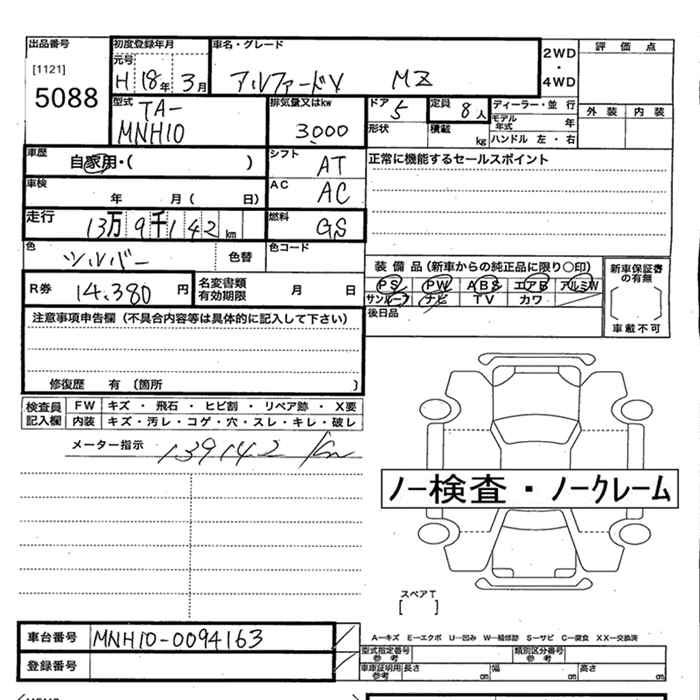 出品番号 初度登録年月 車名・グレード
[1121] 元号
5088 H 18年 3月 アルファードV MZ 2WD・4WD 評価点
型式 排気量又はkw ドア 定員 ディーラー・並行 外装 内装
TA-
MNH10 3,000 5 8人 モデル年式 年
形状 積載 kg ハンドル 左・右
車歴 自家用・( ) シフト AT 正常に機能するセールスポイント
車検 年 月( 日) AC AC
走行 13万9千142km 燃料 GS
色 シルバー 色替 色コード
装備品(新車からの純正品に限り○印) 新車保証書の有無
R券 14,380円 名変書類有効期限 月 日 PS PW ABS エアB アルミW
サンルーフ ナビ TV カワ
車載不可
注意事項申告欄(不具合内容等は具体的に記入して下さい) 後日品
修復歴 有 〔箇所 〕
検査員 FW キズ・飛石・ヒビ割・リペア跡・X要
記入欄 内装 キズ・汚レ・コゲ・穴・スレ・キレ・破レ
メーター指示 139142 km
ノー検査・ノークレーム
スペアT
[ ]
車台番号 MNH10-0094163
A-キズ E-エクボ U-凹み W-補修跡 S-サビ C-腐食 XX-交換済
登録番号 型式指定番号参考 類別区分番号参考
車庫証明用参考 長さ cm 幅 cm 高さ cm